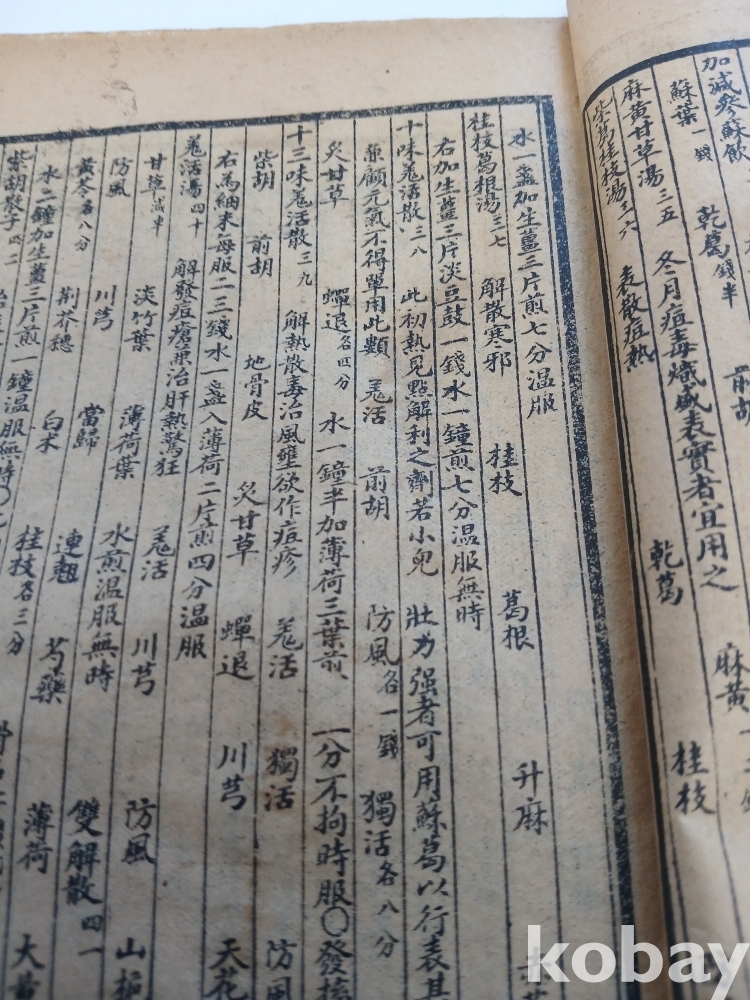 加減參蘇飲
蘇葉一錢 乾葛錢半 前胡
麻黃甘草湯三五 冬月痘毒熾盛表實者宜用之 麻黃一
柴葛桂枝湯三六 表散痘熱 乾葛 桂枝
水一盞加生薑三片煎七分温服
桂枝葛根湯三七 解散寒邪 桂枝 葛根 升麻
右加生薑三片淡豆鼓一錢水一鐘煎七分温服無時
十味羗活散三八 此初熱見點解利之劑若小兒壯力强者可用蘇葛以行表其
兼顧元氣不得單用此類 羗活 前胡 防風各一錢 獨活各八分
炙甘草 蟬退各四分 水一鐘半加薄荷三葉煎一分不拘時服〇發搐
十三味羗活散三九 解熱散毒治風壅欲作痘疹 羗活 獨活 防風
柴胡 前胡 地骨皮 炙甘草 蟬退 川芎 天花
右為細末每服二三錢水一盞入薄荷二片煎四分温服
羗活湯四十 解發痘瘡兼治肝熱驚狂 羗活 川芎 防風 山梔
甘草減半 淡竹葉 薄荷葉 水煎温服無時 雙解散四一
防風 川芎 當歸 連翹 芍藥 薄荷 大黃
黃芩各八分 荊芥穗 白朮 桂枝各三分
水二鐘加生薑三片煎一鐘温服無時〇
柴胡散子四二
kobay